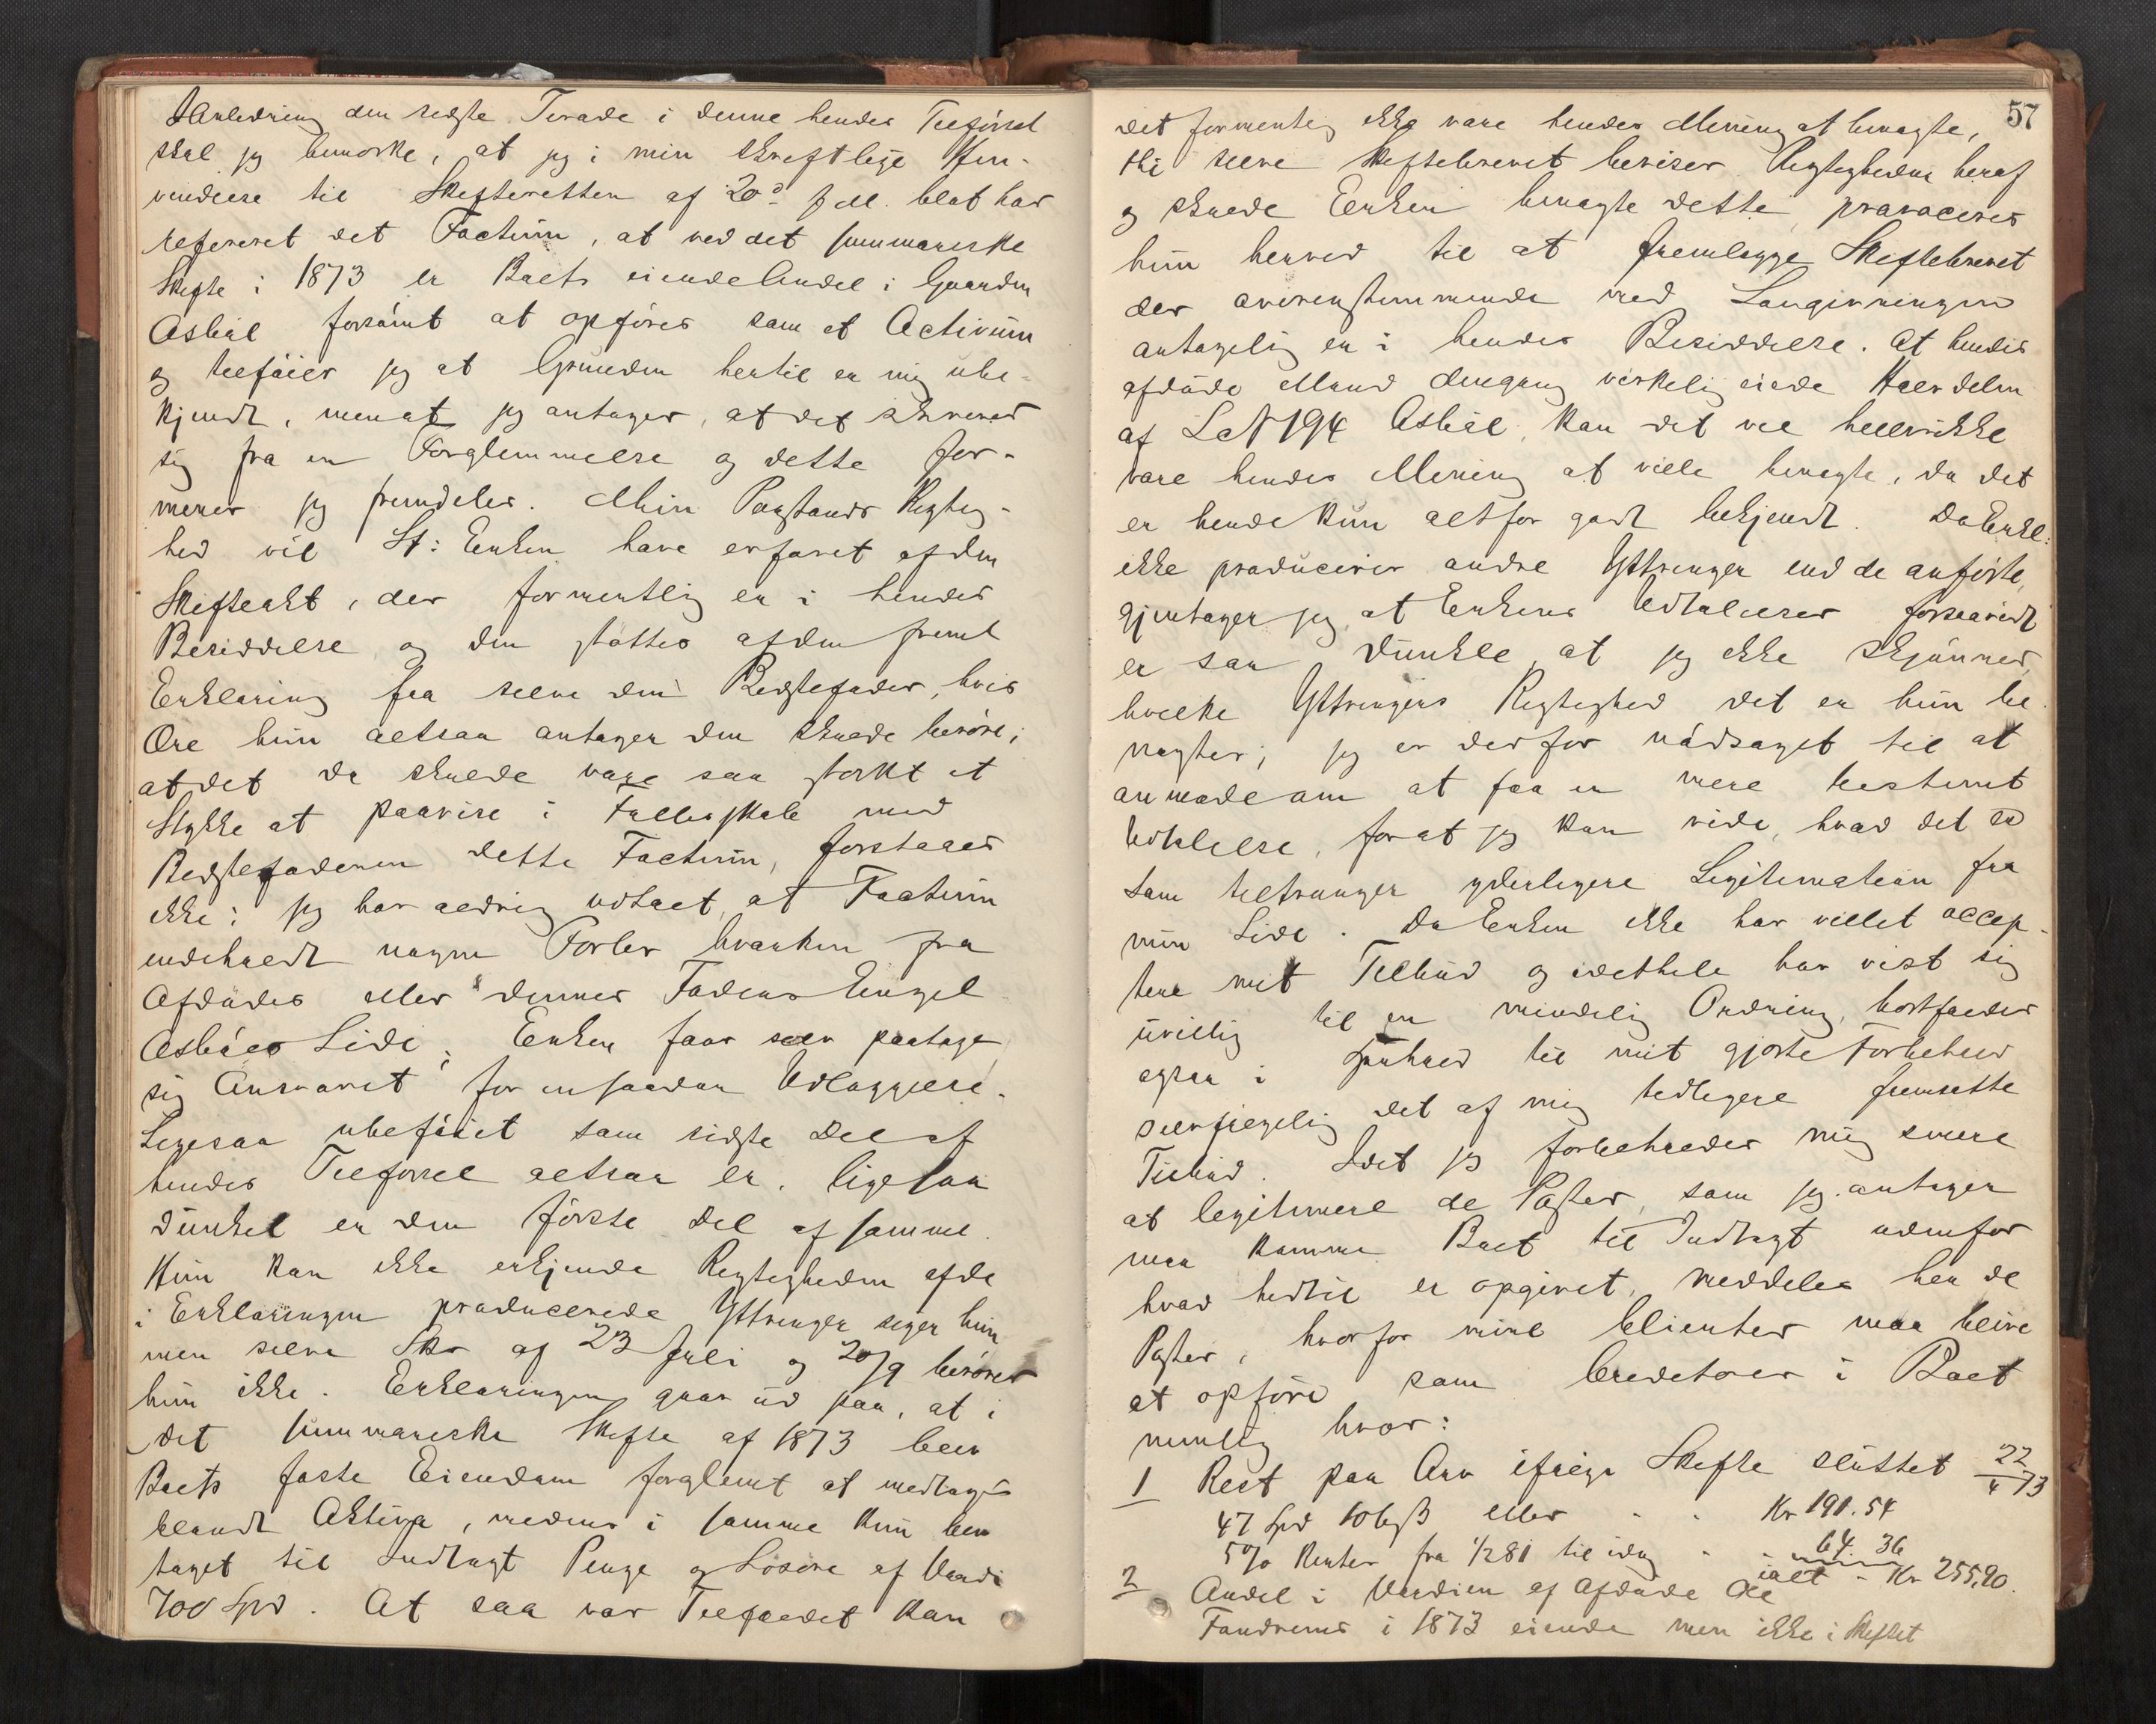 Anledning den sidste Tirade i denne hendes Tilførsel
skal jeg bemærke, at jeg i min skriftlige Hen-
vendelse til Skifteretten af 20de f.M. blot har
refereret det Factum, at ved det summariske
Skifte i 1873 er Boets eiende Andel i Gaarden
Asbøl forsømt at opføres som et Activum
og tilføier jeg at Grunden hertil er mig ube-
kjendt, men at jeg antager, at det skriver
sig fra en Forglemmelse og dette for-
mener jeg fremdeles. Min Paastands Rigtig-
hed vil St: Enken have erfaret af den
Skifteakt, der formentlig er i hendes
Besiddelse og den støttes af den freml
Erklæring fra selve den Bedstefader, hvis
Ære hun altsaa antager den skulde berøre;
at det da skulde være saa stærkt et
Stykke at paavise i Fællesskab med
Bedstefaderen dette Factum, forstaaes
ikke; jeg har aldrig udtalt, at Factum
indeholdt nogen Forlis hverken fra
Afdødes eller dennes Faders Engel
Asbøls Side; Enken faar selv paatage
sig Ansvaret for en saadan Udlæggelse.
Ligesaa ubeføiet som sidste Del af
hendes Tilførsel altsaa er, ligesaa
dunkel er den første Del af samme.
Hun kan ikke erkjende Rigtigheden af de
i Erklæringen producerede Yttringer siger hun
men selve Skr af 23 Juli og 20/9 berører
hun ikke. Erklæringen gaar ud paa, at i
det summariske Skifte af 1873 blev
Boets faste Eiendom forglemt at medtages
blandt Aktiva, medens i samme kun blev
taget til Indtægt Penge og Løsøre af Værdi
700 Spd. At saa var Tilfældet kan
57
det formentlig ikke være hendes Mening at benægte,
thi selve Skiftebrevet beviser Rigtigheden heraf
og skulde Enken benægte dette, provoceres
hun herved til at fremlægge Skiftebrevet
der overensstemmende med Lovgivningen
antagelig er i hendes Besiddelse. At hendes
afdøde Mand dengang virkelig eiede Halvdelen
af L N 194 Asbøl, kan det vel hellerikke
være hendes Mening at ville benægte, da det
er hende kun altfor godt bekjendt. Da Enk:
ikke producerer andre Yttringer end de anførte,
gjentager jeg, at Enkens Udtalelser forsaavidt
er saa dunkle, at jeg ikke skjønner,
hvilke Yttringers Rigtighed det er hun be
nægter; jeg er derfor nødsaget til at
anmode om at faa en mere bestemt
Udtalelse, for at jeg kan vide, hvad det er
som tiltrænger yderligere Legitimation fra
min Side. Da Enken ikke har villet accep-
tere mit Tilbud og idethele har vist sig
uvillig til en mindelig Ordning, bortfalder
ogsaa i Henhold til mit gjorte Forbehold
selvfølgelig det af mig tidligere fremsatte
Tilbud. Idet jeg forbeholder mig senere
at legitimere de Poster, som jeg antager
maa komme Boet til Indtægt udenfor
hvad hidtil er opgivet, meddeles her de
Poster, hvorfor mine Clienter maa blive
at opføre som Creditorer i Boet
nemlig hvor:
1 Rest paa Arv ifølge Skifte sluttet 22/4 73
47 Spd 106 ß eller - - Kr 191.54
5% Renter fra 1/2 81 til idag - - 64.36
ialt - Kr 255,90.
2 Andel i Værdien af afdøde Ole
Fandrems i 1873 eiende men ikke i Skiftet